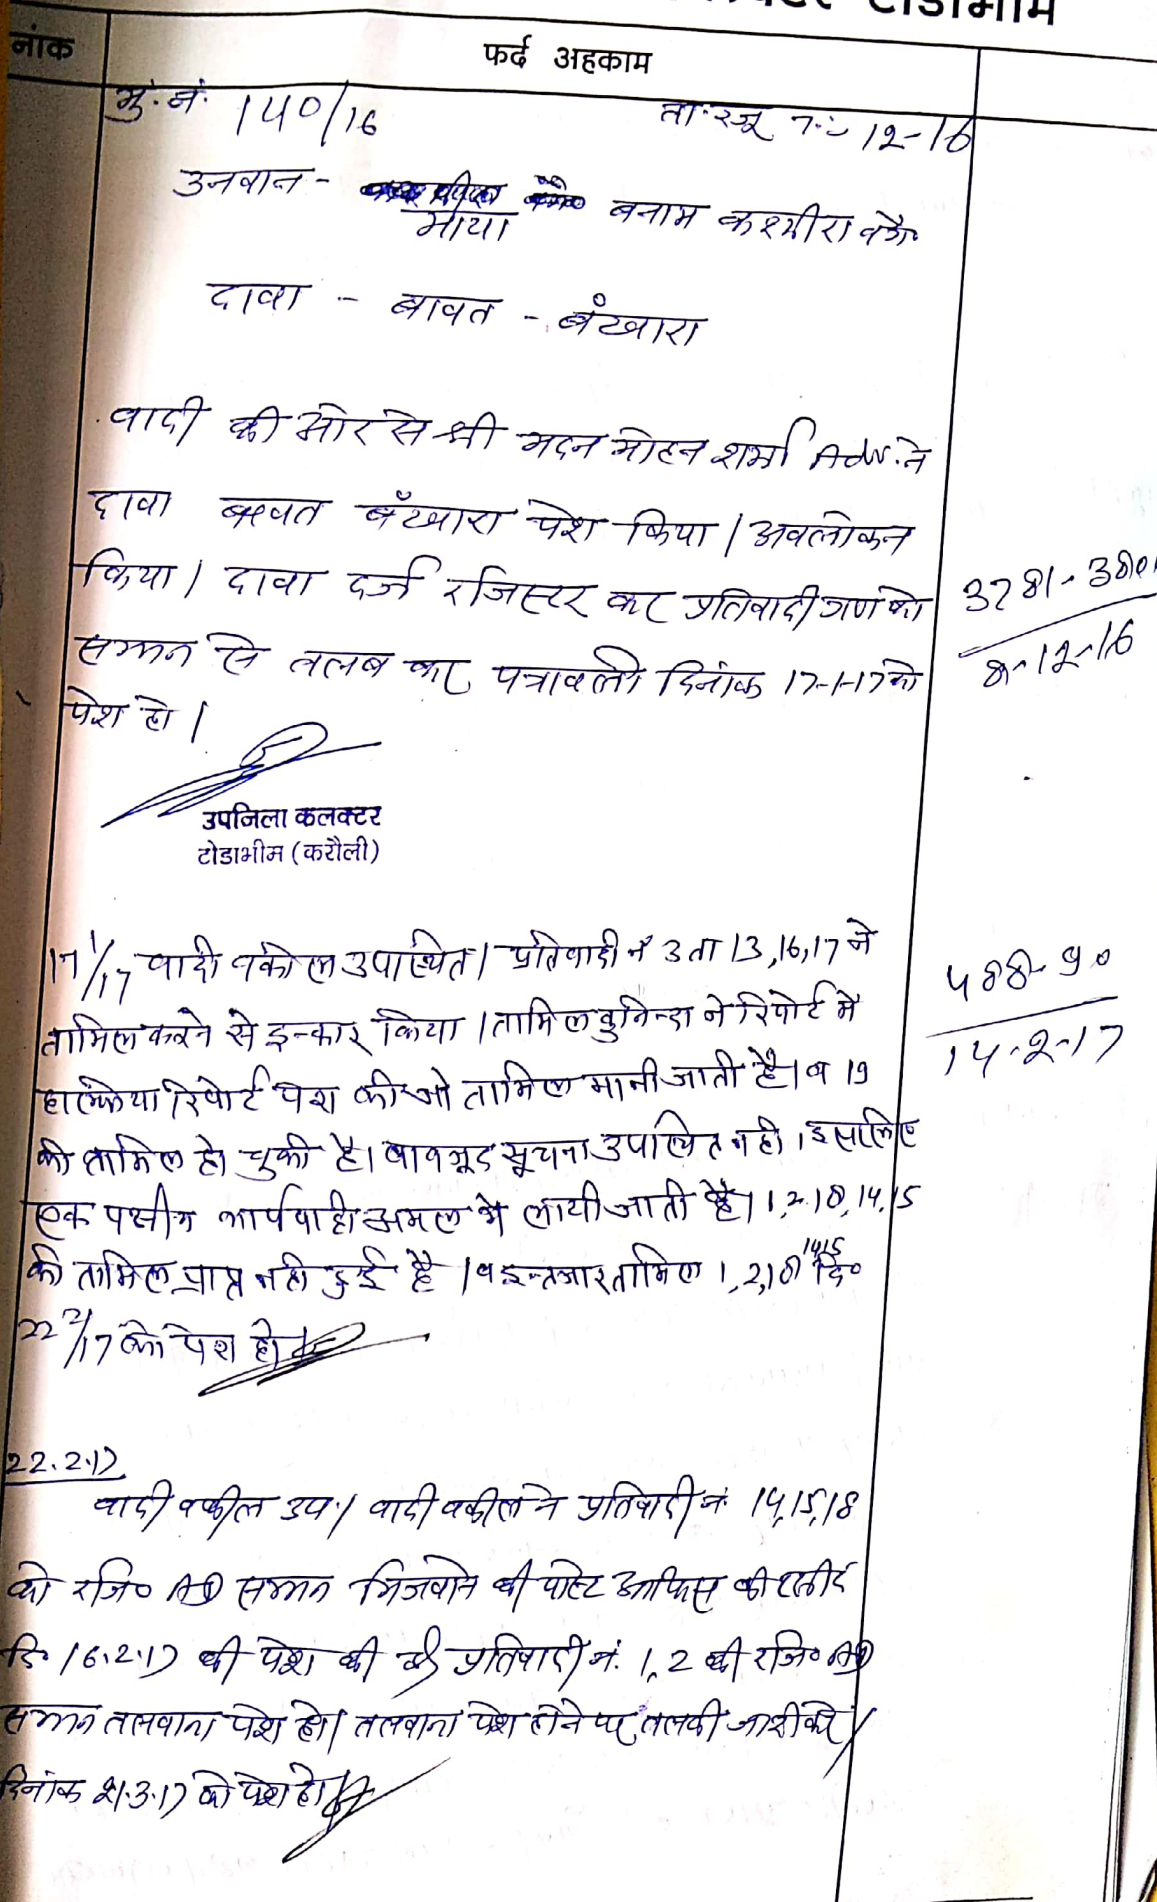 टोडाभीम
नांक
फर्द अहकाम
मु.नं. 140/16 ता. रजू 7-12-16
उनवान - माया बनाम कश्मीरा वगै०
दावा - बावत - बँटवारा
वादी की ओर से श्री मदन मोहन शर्मा Adv. ने
दावा बावत बँटवारा पेश किया। अवलोकन
किया। दावा दर्ज रजिस्टर कर प्रतिवादी गण को
सम्मन से तलब कर पत्रावली दिनांक 17-1-17 को
पेश हो।
3781-380
8-12-16
उपजिला कलक्टर
टोडाभीम (करौली)
17/1/17 वादी वकील उपस्थित। प्रतिवादी नं 3 ता 13,16,17 ने
तामिल करने से इन्कार किया। तामिल कुनिन्दा ने रिपोर्ट मे
हल्फिया रिपोर्ट पेश की जो तामिल मानी जाती है। व 19
की तामिल हो चुकी है। बावजूद सूचना उपस्थित नही। इसलिए
एक पक्षीय कार्यवाही अमल मे लायी जाती है। 1,2,18,14,15
की तामिल प्राप्त नही हुई है। व इन्तजार तामिल 1,2,18 14,15 दि०
22/2/17 को पेश हो।
488-90
14-2-17
22.2.17
वादी वकील उप.। वादी वकील ने प्रतिवादी नं. 14,15,18
को रजि० AD सम्मन भिजवाने की पोस्ट आफिस की रसीद
दि. 16.2.17 की पेश की प्रतिवादी नं. 1,2 की रजि० AD
सम्मन तलवाना पेश हो। तलवाना पेश होने पर तलवी जारी करे।
दिनांक 21.3.17 को पेश हो।